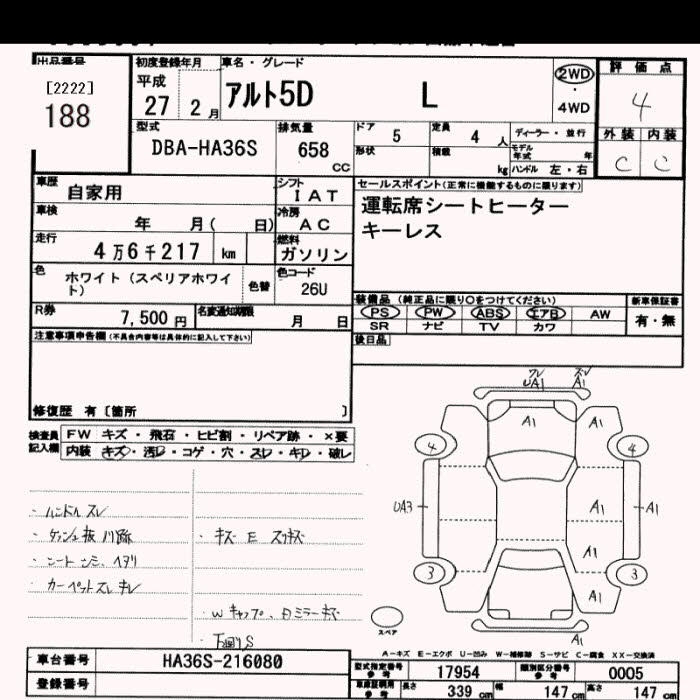 出品番号
[2222]
188
初度登録年月
平成
27 2月
車名・グレード
アルト5D L
2WD
4WD
評価点
4
外装 内装
C C
型式
DBA-HA36S
排気量
658
CC
ドア 5
定員 4 人
形状
積載 kg
ディーラー・並行
モデル年式 年
ハンドル 左・右
車歴
自家用
シフト
IAT
車検
年 月( 日)
冷房
AC
走行
4万6千217 km
燃料
ガソリン
色
ホワイト(スペリアホワイト)
色替
色コード
26U
R券
7,500円
名変通知期限
月 日
セールスポイント(正常に機能するものに限ります)
運転席シートヒーター
キーレス
装備品(純正品に限り○をつけてください)
PS PW ABS エアB AW
SR ナビ TV カワ
新車保証書
有・無
後日品
注意事項申告欄(不具合内容等は具体的に記入して下さい)
修復歴 有〔箇所 〕
検査員記入欄
FW キズ・飛石・ヒビ割・リペア跡・×要
内装 キズ・汚レ・コゲ・穴・スレ・キレ・破レ
・ハンドル スレ
・シート シミ、ヘタリ
・カーペットスレキレ
・キズ E スリキズ
・下回りS
UA1 A1
A1
A1
4
4
UA3
A1
A1
A1
3
3
A1
A1
スペア
A-キズ E-エクボ U-凹み W-補修跡 S-サビ C-腐食 XX-交換済
車台番号
HA36S-216080
登録番号
型式指定番号
参考
17954
類別区分番号
参考
0005
車庫証明用
参考
長さ 339 cm
幅 147 cm
高さ 147 cm